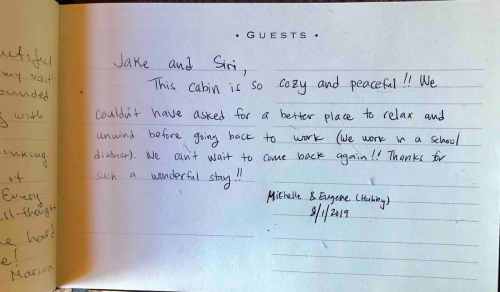 • GUESTS •
Jake and Siri,
This cabin is so cozy and peaceful!! We
couldn't have asked for a better place to relax and
unwind before going back to work (we work in a school
district). We can't wait to come back again!! Thanks for
such a wonderful stay!!
Michelle & Eugene
8/1/2019
my visit
ounded
with
of
Every
hard
Marion